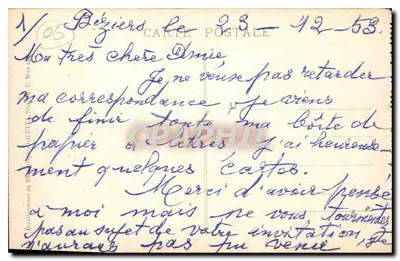 1/ Béziers le 23-12-53.
CARTE POSTALE
Ma très chère Amie
Je ne veux pas retarder
ma correspondance je viens
de finir toute ma boîte de
papier à lettres, j'ai heureuse-
ment quelques cartes.
Merci d'avoir pensé
à moi mais ne vous tourmentez
pas au sujet de votre invitation, je
n'aurais pas pu venir, je